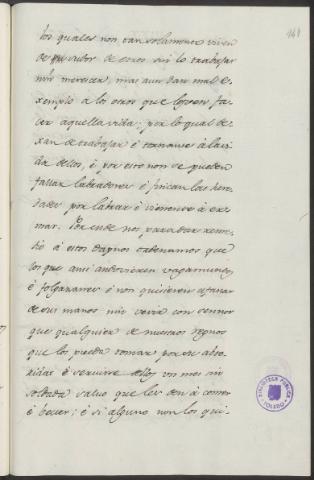 168
los quales non tan solamente viven
de sudor de otros sin lo trabajar
nin merecer, mas aun dan mal e-
xemplo a los otros que los veen fa-
cer aquella vida; por lo qual de-
xan de trabajar é tornanse à la vi-
da dellos, é por esto non se pueden
fallar labradores é fincan las here-
dades por labrar é vienense à ere-
mar. Por ende nos para dar reme-
dio à estos dapnos ordenamos que
los que ansi andovieren vagamundos
é folgazanes é non quisieren afanar
de sus manos nin vevir con sennor
que qualquier de nuestros regnos
que los pueda tomar por su abto-
ridat é servirse dellos un mes sin
soldada salvo que les den à comer
é bever; é si alguno non los qui-
BIBLIOTECA PUBLICA
TOLEDO